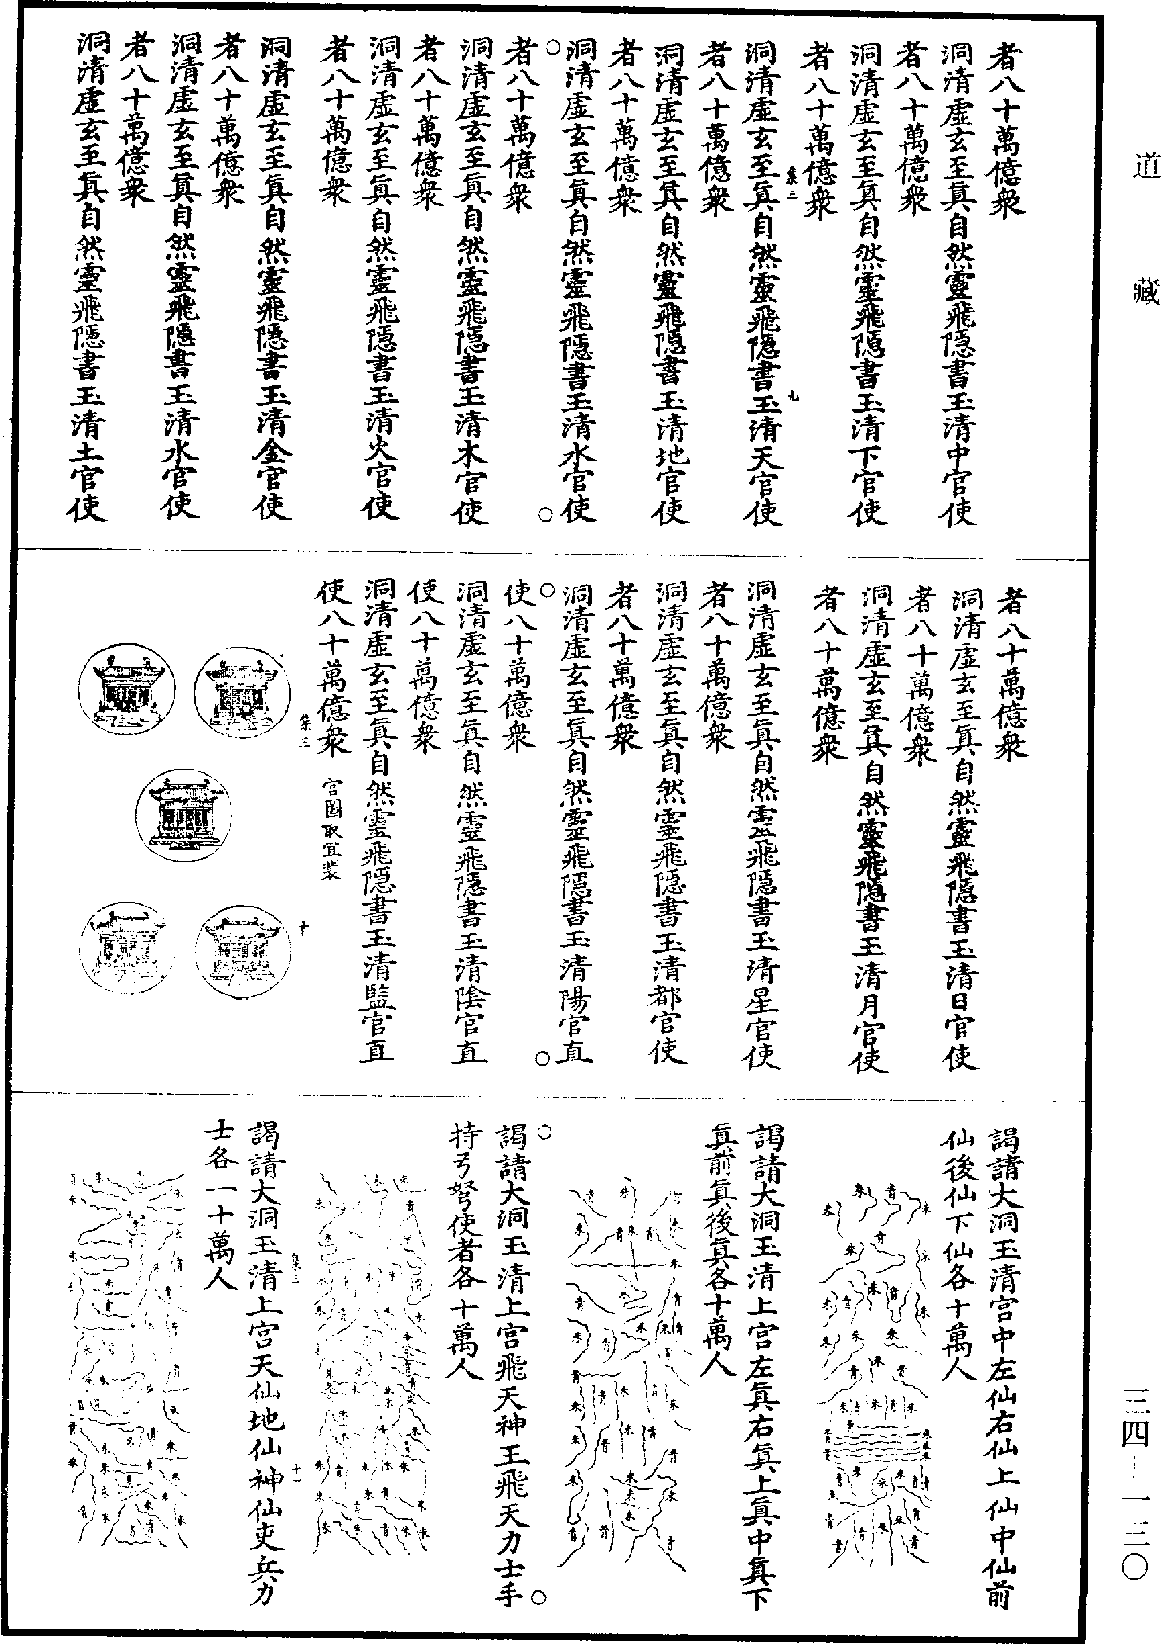 道藏
三四—一三〇
者八十萬億衆
洞清虛玄至眞自然靈飛隱書玉清中官使
者八十萬億衆
洞清虛玄至眞自然靈飛隱書玉清下官使
者八十萬億衆
洞清虛玄至眞自然靈飛隱書玉清天官使
者八十萬億衆
洞清虛玄至眞自然靈飛隱書玉清地官使
者八十萬億衆
洞清虛玄至眞自然靈飛隱書玉清水官使
者八十萬億衆
洞清虛玄至眞自然靈飛隱書玉清木官使
者八十萬億衆
洞清虛玄至眞自然靈飛隱書玉清火官使
者八十萬億衆
洞清虛玄至眞自然靈飛隱書玉清金官使
者八十萬億衆
洞清虛玄至眞自然靈飛隱書玉清水官使
者八十萬億衆
洞清虛玄至眞自然靈飛隱書玉清土官使
者八十萬億衆
洞清虛玄至眞自然靈飛隱書玉清日官使
者八十萬億衆
洞清虛玄至眞自然靈飛隱書玉清月官使
者八十萬億衆
洞清虛玄至眞自然靈飛隱書玉清星官使
者八十萬億衆
洞清虛玄至眞自然靈飛隱書玉清都官使
者八十萬億衆
洞清虛玄至眞自然靈飛隱書玉清陽官直
使八十萬億衆
洞清虛玄至眞自然靈飛隱書玉清陰官直
使八十萬億衆
洞清虛玄至眞自然靈飛隱書玉清監官直
使八十萬億衆 宫圖取宜裝
集三
十
謁請大洞玉清宫中左仙右仙上仙中仙前
仙後仙下仙各十萬人
謁請大洞玉清上宫左眞右眞上眞中眞下
眞前眞後眞各十萬人
謁請大洞玉清上宫飛天神王飛天力士手
持弓弩使者各十萬人
謁請大洞玉清上宫天仙地仙神仙吏兵力
士各一十萬人
集三
十一